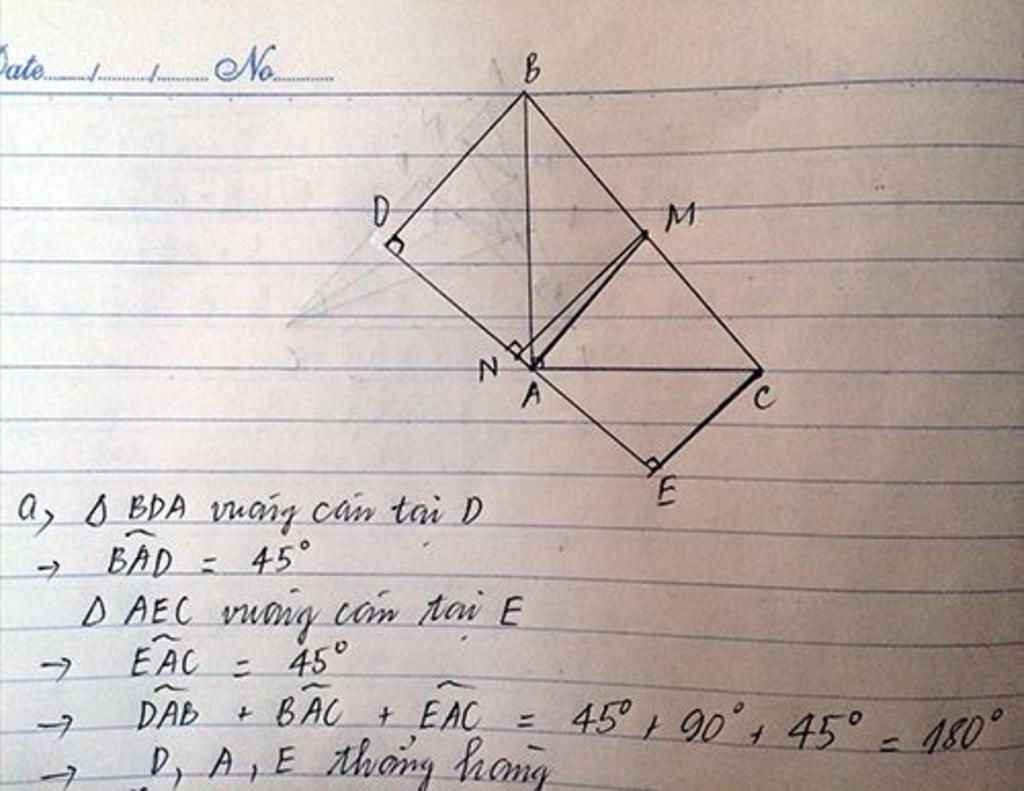 Date....../......../........ No..........
B
D
M
N
A
C
E
a, Δ BDA vuông cân tại D
→ BAD = 45°
Δ AEC vuông cân tại E
→ EAC = 45°
→ DAB + BAC + EAC = 45° + 90° + 45° = 180°
→ D, A, E thẳng hàng